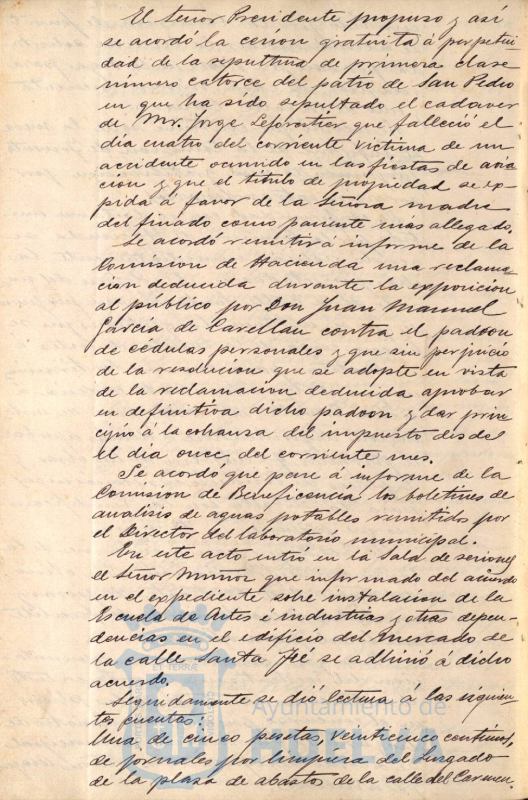 El Señor Presidente propuso y así
se acordó la cesion gratuita á perpetui
dad de la sepultura de primera clase
número catorce del patio de San Pedro
en que ha sido sepultado el cadaver
de Mr. Jorge Leforestier que falleció el
dia cuatro del corriente victima de un
accidente ocurrido en las fiestas de avia
cion y que el titulo de propiedad se ex-
pida á favor de la Señora madre
del finado como pariente mas allegado.
Se acordó remitir á informe de la
Comision de Hacienda una reclama
cion deducida durante la exposicion
al público por Don Juan Manuel
García de Carellan contra el padron
de cédulas personales y que sin perjuicio
de la resolucion que se adopte en vista
de la reclamacion deducida aprobar
en definitiva dicho padron y dar prin
cipio á la cobranza del impuesto desde
el dia once del corriente mes.
Se acordó que pase á informe de la
Comision de Beneficencia los boletines de
analisis de aguas potables remitidos por
el Director del laboratorio municipal.
En este acto entró en la Sala de sesiones
el Señor Muñoz que informado del acuerdo
en el expediente sobre instalacion de la
Escuela de Artes é industrias y otras depen-
dencias en el edificio del mercado de
la calle Santa Fé se adhirió á dicho
acuerdo.
Seguidamente se dió lectura á las siguien
tes cuentas:
Una de cinco pesetas, veinticinco centimos,
de jornales por limpieza del Juzgado
de la plaza de abastos de la calle del Carmen.
Ayuntamiento de
HUELVA